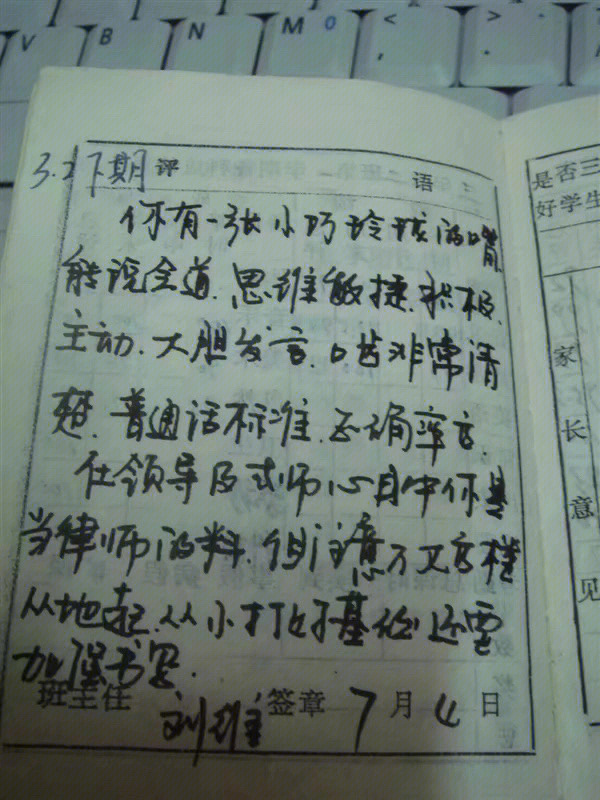 V B N M 0 < , > .
3.2下期 评 语
你有一张小巧玲珑的嘴
能说会道.思维敏捷.积极.
主动.大胆发言.口齿非常清
楚.普通话标准.正确率高.
在领导及老师心目中你是
当律师的料.但注意万丈高楼
从地起.从小打好基础还需
加强书写.
班主任 刘维 签章 7月4日
是否三
好学生
家
长
意
见